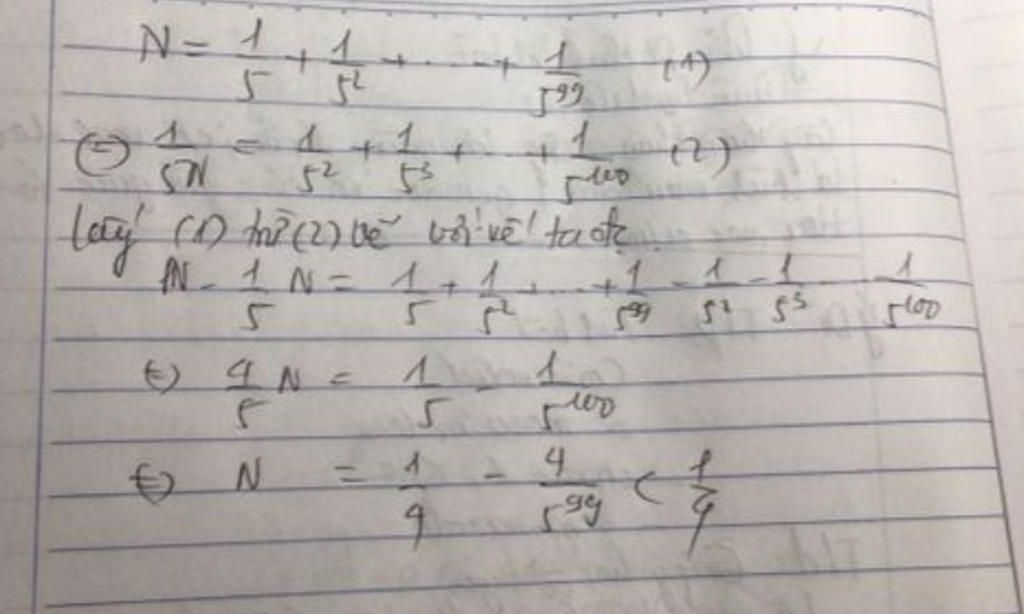 N = 1/5 + 1/5² + ... + 1/5⁹⁹ (1)
(=) 1/5N = 1/5² + 1/5³ + ... + 1/5¹⁰⁰ (2)
lấy (1) trừ (2) vế với vế ta đc
N - 1/5 N = 1/5 + 1/5² + ... + 1/5⁹⁹ - 1/5² - 1/5³ ... - 1/5¹⁰⁰
(=) 4/5 N = 1/5 - 1/5¹⁰⁰
(=) N = 1/4 - 4/5⁹⁹ < 1/4